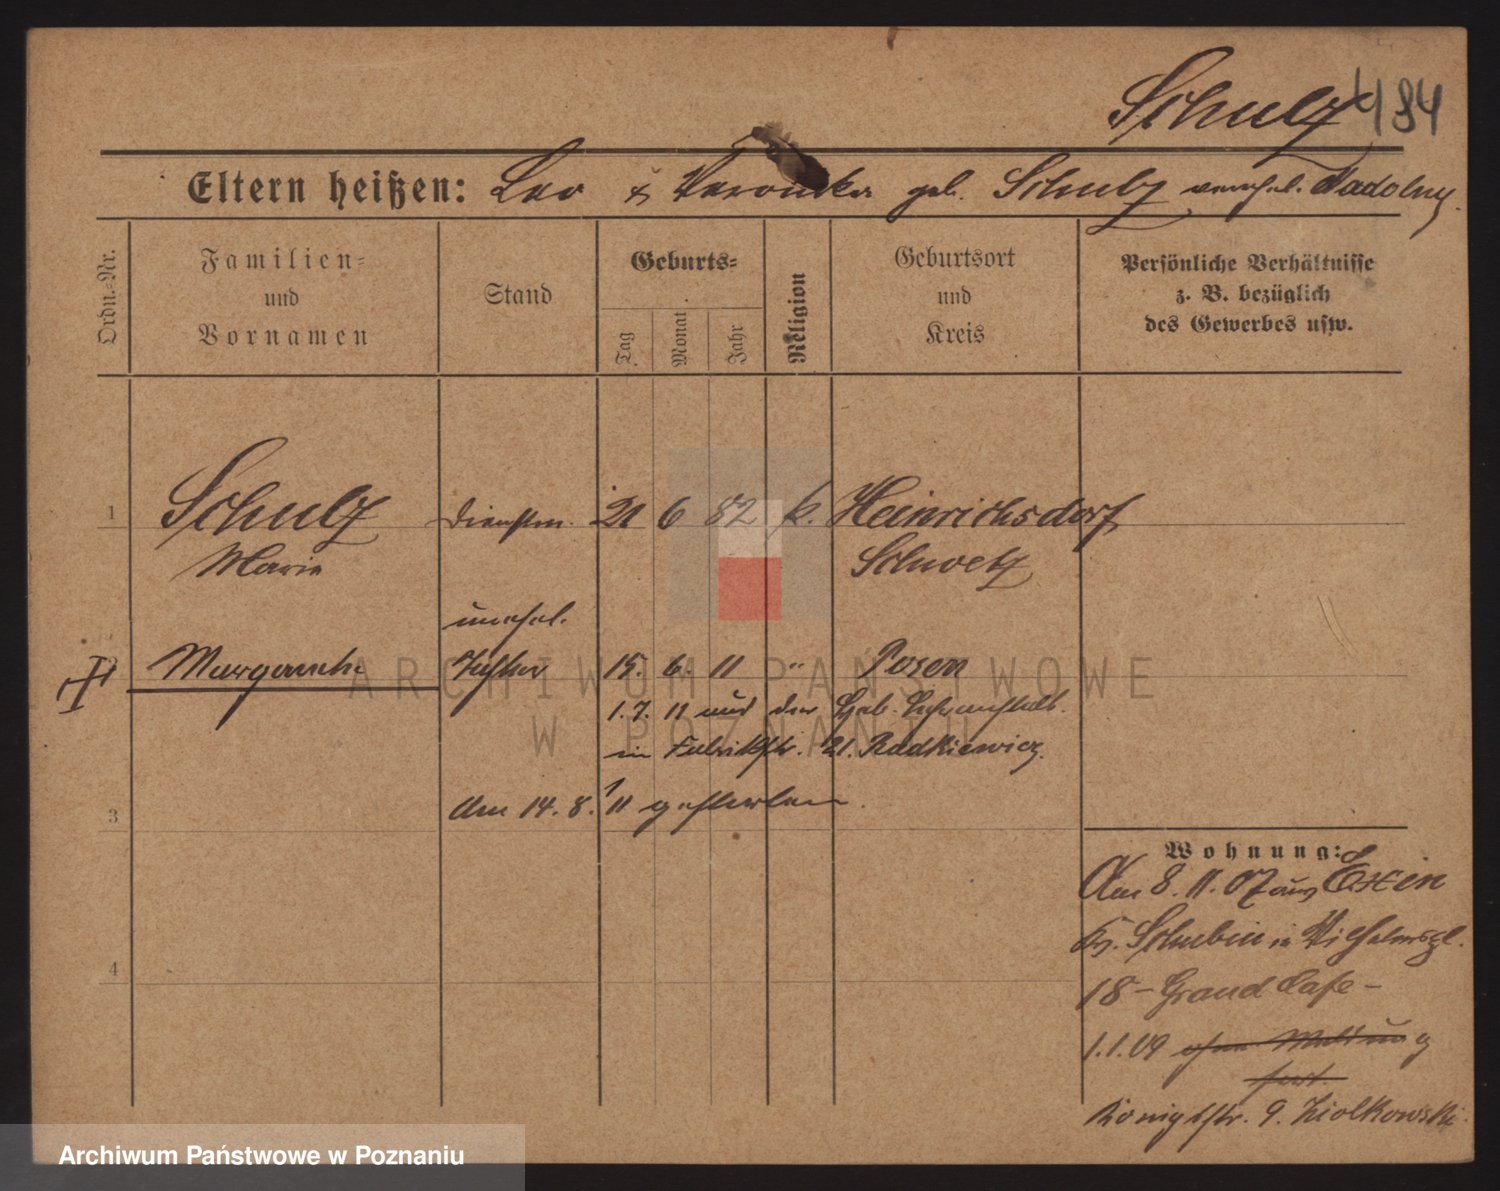 Schulz 484
Eltern heißen: Leo & Veronika geb. Schulz verehel. Nadolny.
Ordn.-Nr.
Familien-
und
Vornamen
Stand
Geburts-
Tag
Monat
Jahr
Religion
Geburtsort
und
Kreis
Persönliche Verhältnisse
z. B. bezüglich
des Gewerbes usw.
1 Schulz Dienstm. 21 6 82 k. Heinrichsdorf
Marie Schwetz
unehel.
Margarethe Tochter 15. 6. 11 " Posen
1. 7. 11 aus der Heb. Lehranstalt.
in Fabrikstr. 21. Radkiewicz.
3 am 14. 8. 11 gestorben.
Wohnung:
Am 8. 11. 07 aus Exin
Kr. Schubin in Wilhelmspl.
18 - Grand Cafe -
1.1.09 ohne Meldung
fort.
Königstr. 9. Ziolkowski
4
ARCHIWUM PAŃSTWOWE
W POZNANIU
Archiwum Państwowe w Poznaniu